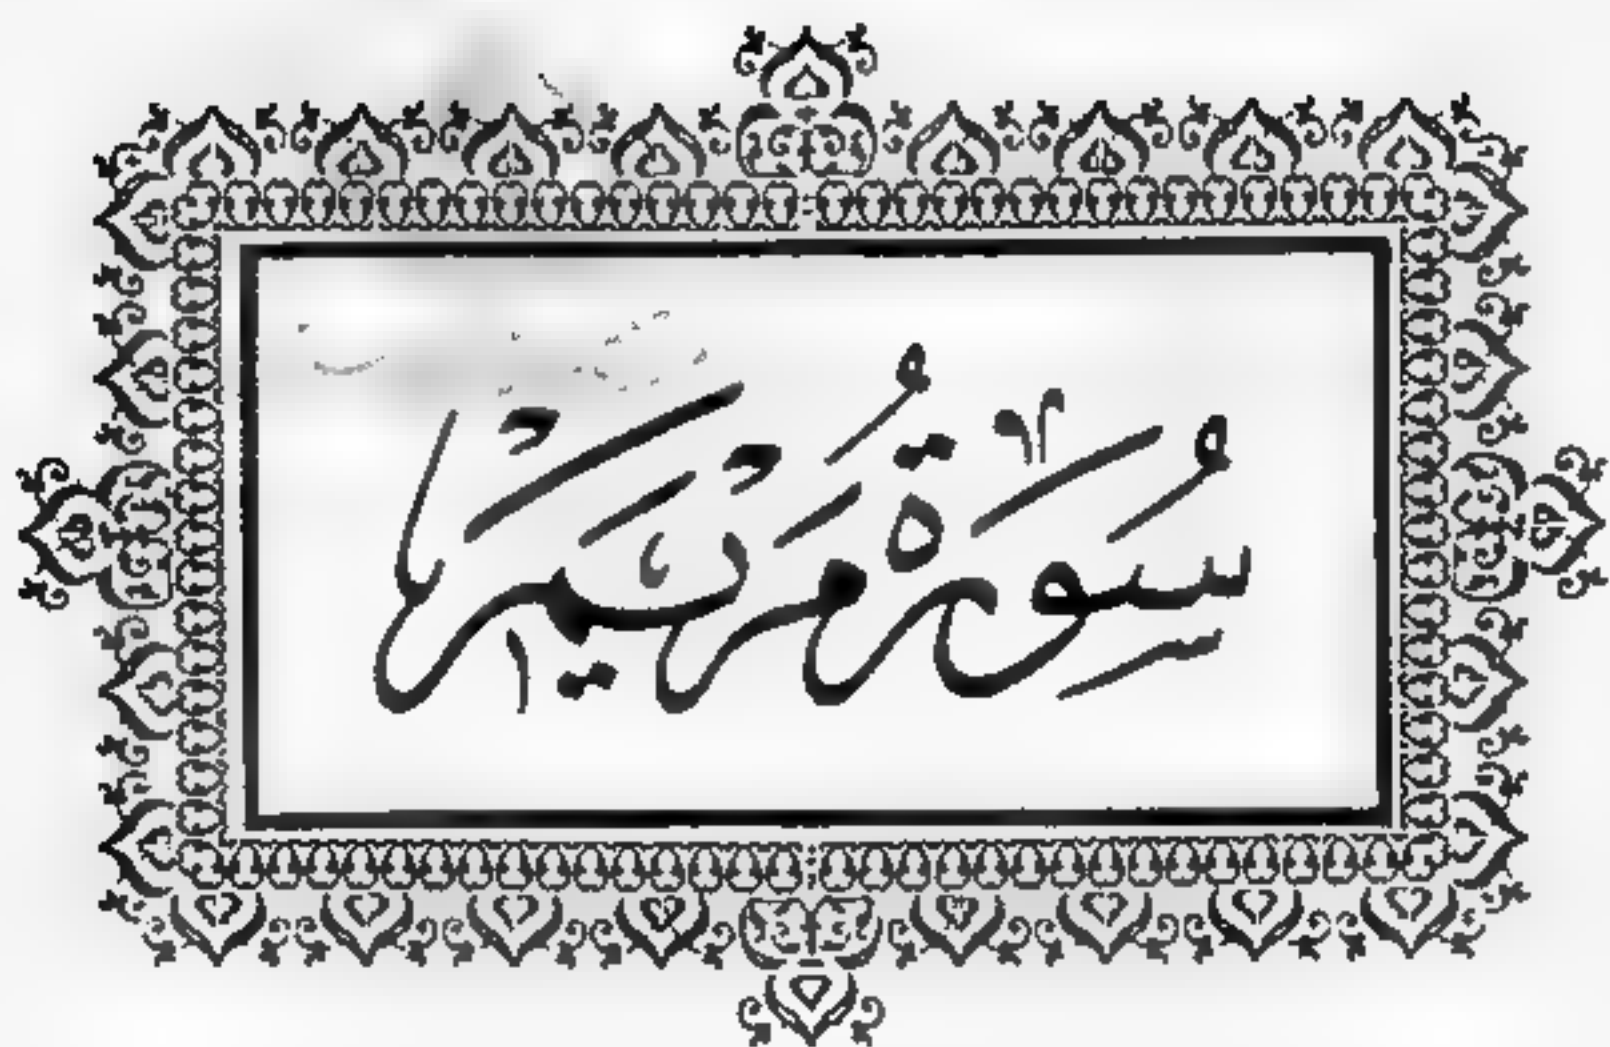 سُوْرَةُ مَرْيَمَ